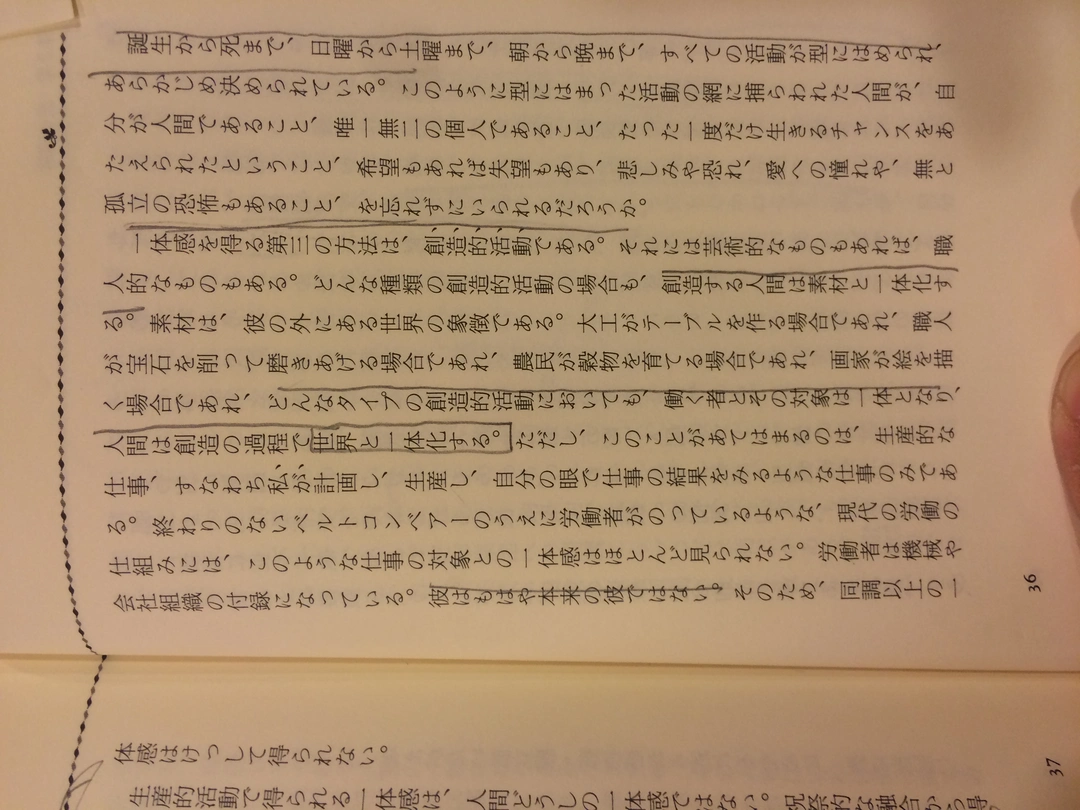 誕生から死まで、日曜から土曜まで、朝から晩まで、すべての活動が型にはめられ、
あらかじめ決められている。このように型にはまった活動の網に捕らわれた人間が、自
分が人間であること、唯一無二の個人であること、たった一度だけ生きるチャンスをあ
たえられたということ、希望もあれば失望もあり、悲しみや恐れ、愛への憧れや、無と
孤立の恐怖もあること、を忘れずにいられるだろうか。
一体感を得る第三の方法は、創造的活動である。それには芸術的なものもあれば、職
人的なものもある。どんな種類の創造的活動の場合も、創造する人間は素材と一体化す
る。素材は、彼の外にある世界の象徴である。大工がテーブルを作る場合であれ、職人
が宝石を削って磨きあげる場合であれ、農民が穀物を育てる場合であれ、画家が絵を描
く場合であれ、どんなタイプの創造的活動においても、働く者とその対象は一体となり、
人間は創造の過程で世界と一体化する。ただし、このことがあてはまるのは、生産的な
仕事、すなわち私が計画し、生産し、自分の眼で仕事の結果をみるような仕事のみであ
る。終わりのないベルトコンベアーのうえに労働者がのっているような、現代の労働の
仕組みには、このような仕事の対象との一体感はほとんど見られない。労働者は機械や
会社組織の付録になっている。彼はもはや本来の彼ではない。そのため、同調以上の一
36
体感はけっして得られない。
生産的活動で得られる一体感は、人間どうしの一体感ではない。祝祭的な融合いう
37